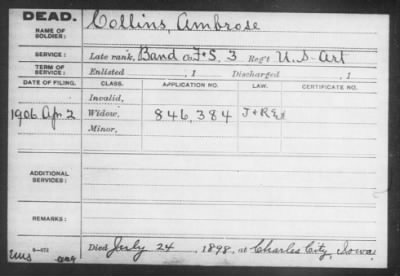 DEAD.
NAME OF SOLDIER: Collins, Ambrose
SERVICE: Late rank, Band Co. F+S, 3 Reg't U.S. Art
TERM OF SERVICE: Enlisted , 1 Discharged , 1
DATE OF FILING. CLASS. APPLICATION NO. LAW. CERTIFICATE NO.
Invalid,
1906 Apr 2 Widow, 846,384
Minor,
ADDITIONAL SERVICES:
REMARKS:
Died July 24, 1898, at Charles City, Iowa